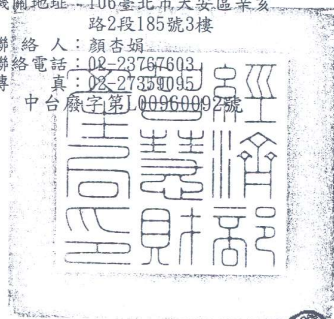 機關地址：106臺北市大安區辛亥
路2段185號3樓
聯絡人：顏杏娟
聯絡電話：02-23767603
傳真：02-27359095
中台廢字第L00960092號
經濟部
智慧財
產局印